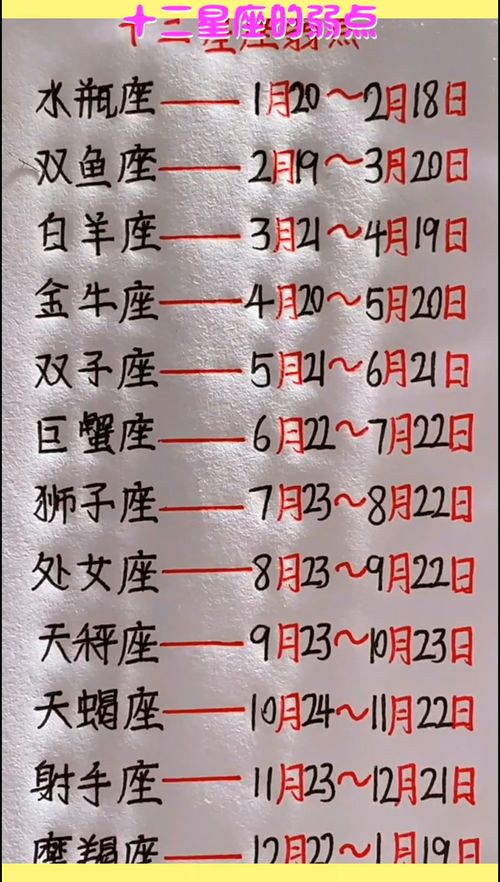 十三星座的弱点
水瓶座——1月20～2月18日
双鱼座——2月19～3月20日
白羊座——3月21～4月19日
金牛座——4月20～5月20日
双子座——5月21～6月21日
巨蟹座——6月22～7月22日
狮子座——7月23～8月22日
处女座——8月23～9月22日
天秤座——9月23～10月23日
天蝎座——10月24～11月22日
射手座——11月23～12月21日
摩羯座——12月22～1月19日